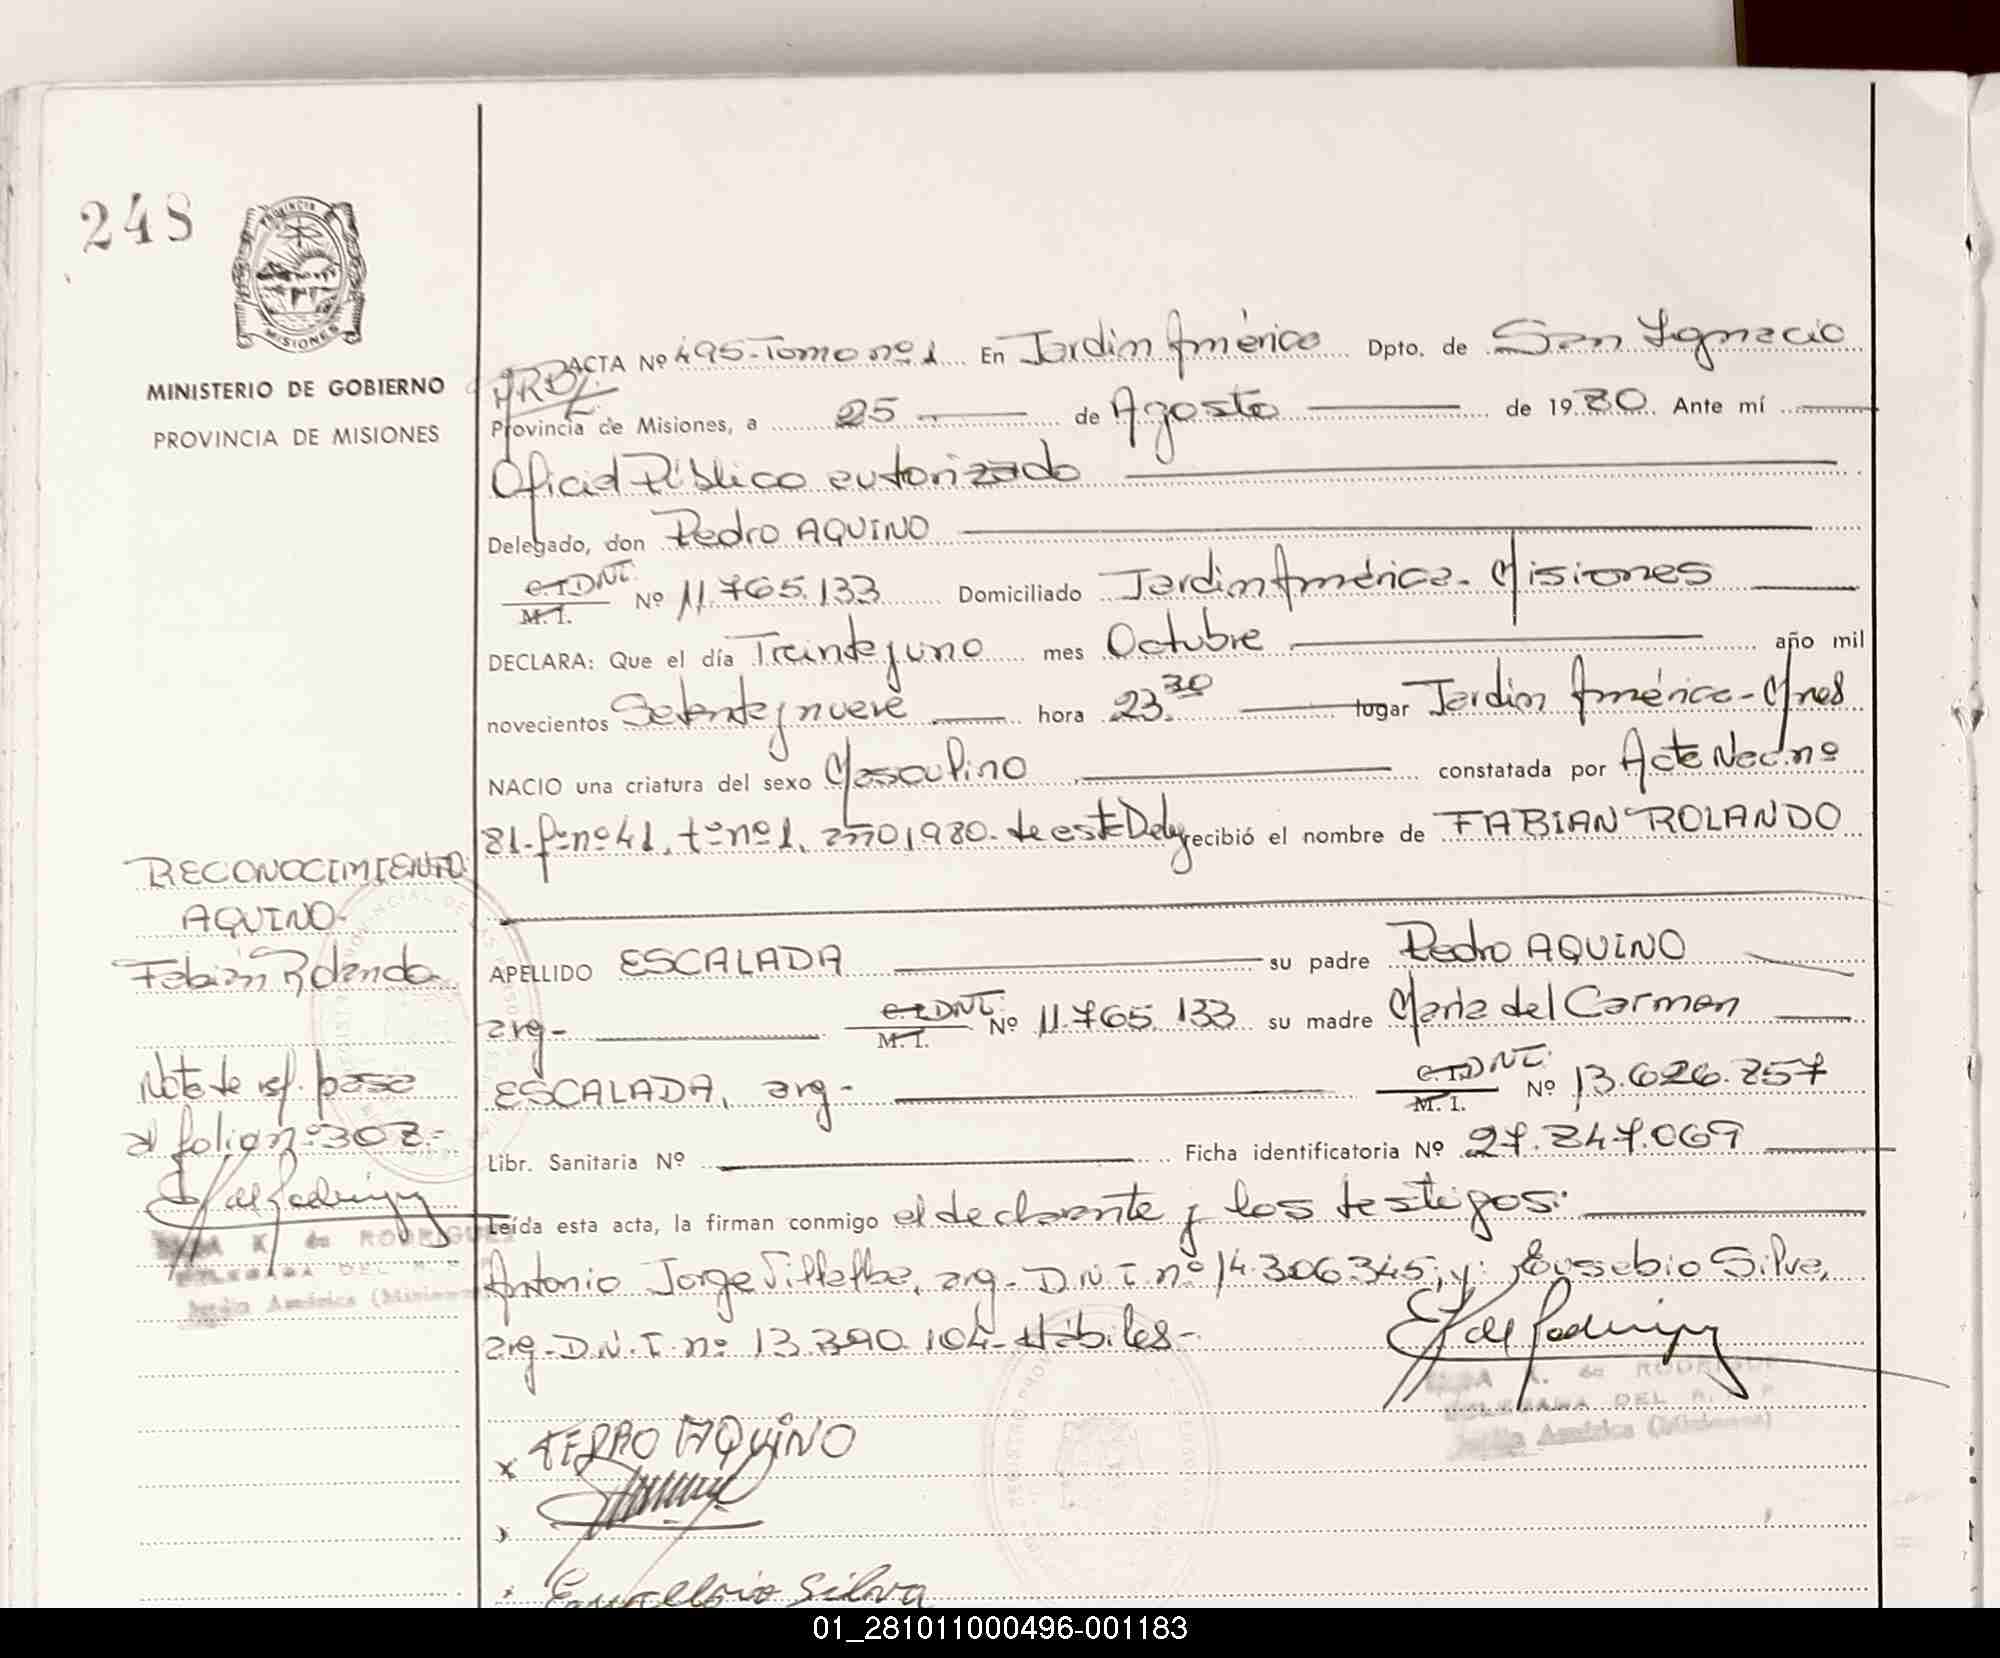 248
PROVINCIA
MISIONES
MINISTERIO DE GOBIERNO
PROVINCIA DE MISIONES
ACTA Nº 495-Tomo nº1 En Jardin América Dpto. de San Ignacio
Provincia de Misiones, a 25 de Agosto de 1980. Ante mí
Oficial Público autorizado
Delegado, don Pedro AQUINO
C.I. DNI. M. I. Nº 11.765.133 Domiciliado Jardin América - Misiones
DECLARA: Que el día Treinta y uno mes Octubre año mil
novecientos Setenta y nueve hora 23.30 lugar Jardin América - Mnes
NACIO una criatura del sexo Masculino constatada por Acta Nac. nº
81-fº nº 41, tº nº 1, año 1980 - de esta Deleg recibió el nombre de FABIAN ROLANDO
RECONOCIMIENTO
AQUINO-
Fabián Rolando
APELLIDO ESCALADA su padre Pedro AQUINO
arg- C.I. DNI. M. I. Nº 11.765.133 su madre Maria del Carmen
ESCALADA, arg- C.I. DNI. M. I. Nº 13.626.857
Nota de ref. pasa
al folio nº 308.-
Libr. Sanitaria Nº Ficha identificatoria Nº 27.847.069
Leída esta acta, la firman conmigo el declarante y los testigos:
Antonio Jorge Villalba, arg- D.N.I. nº 14.306.345; y: Eusebio Silva,
arg- D.N.I. nº 13.390.104- Hábiles-
K. de RODRIGUEZ
DELEGADA DEL R.
Jardín América (Misiones)
A K. de RODRIGUE
DELEGADA DEL R. P.
Jardín América (Misiones)
x PEDRO AQUINO
Eusebio Silva
01_281011000496-001183